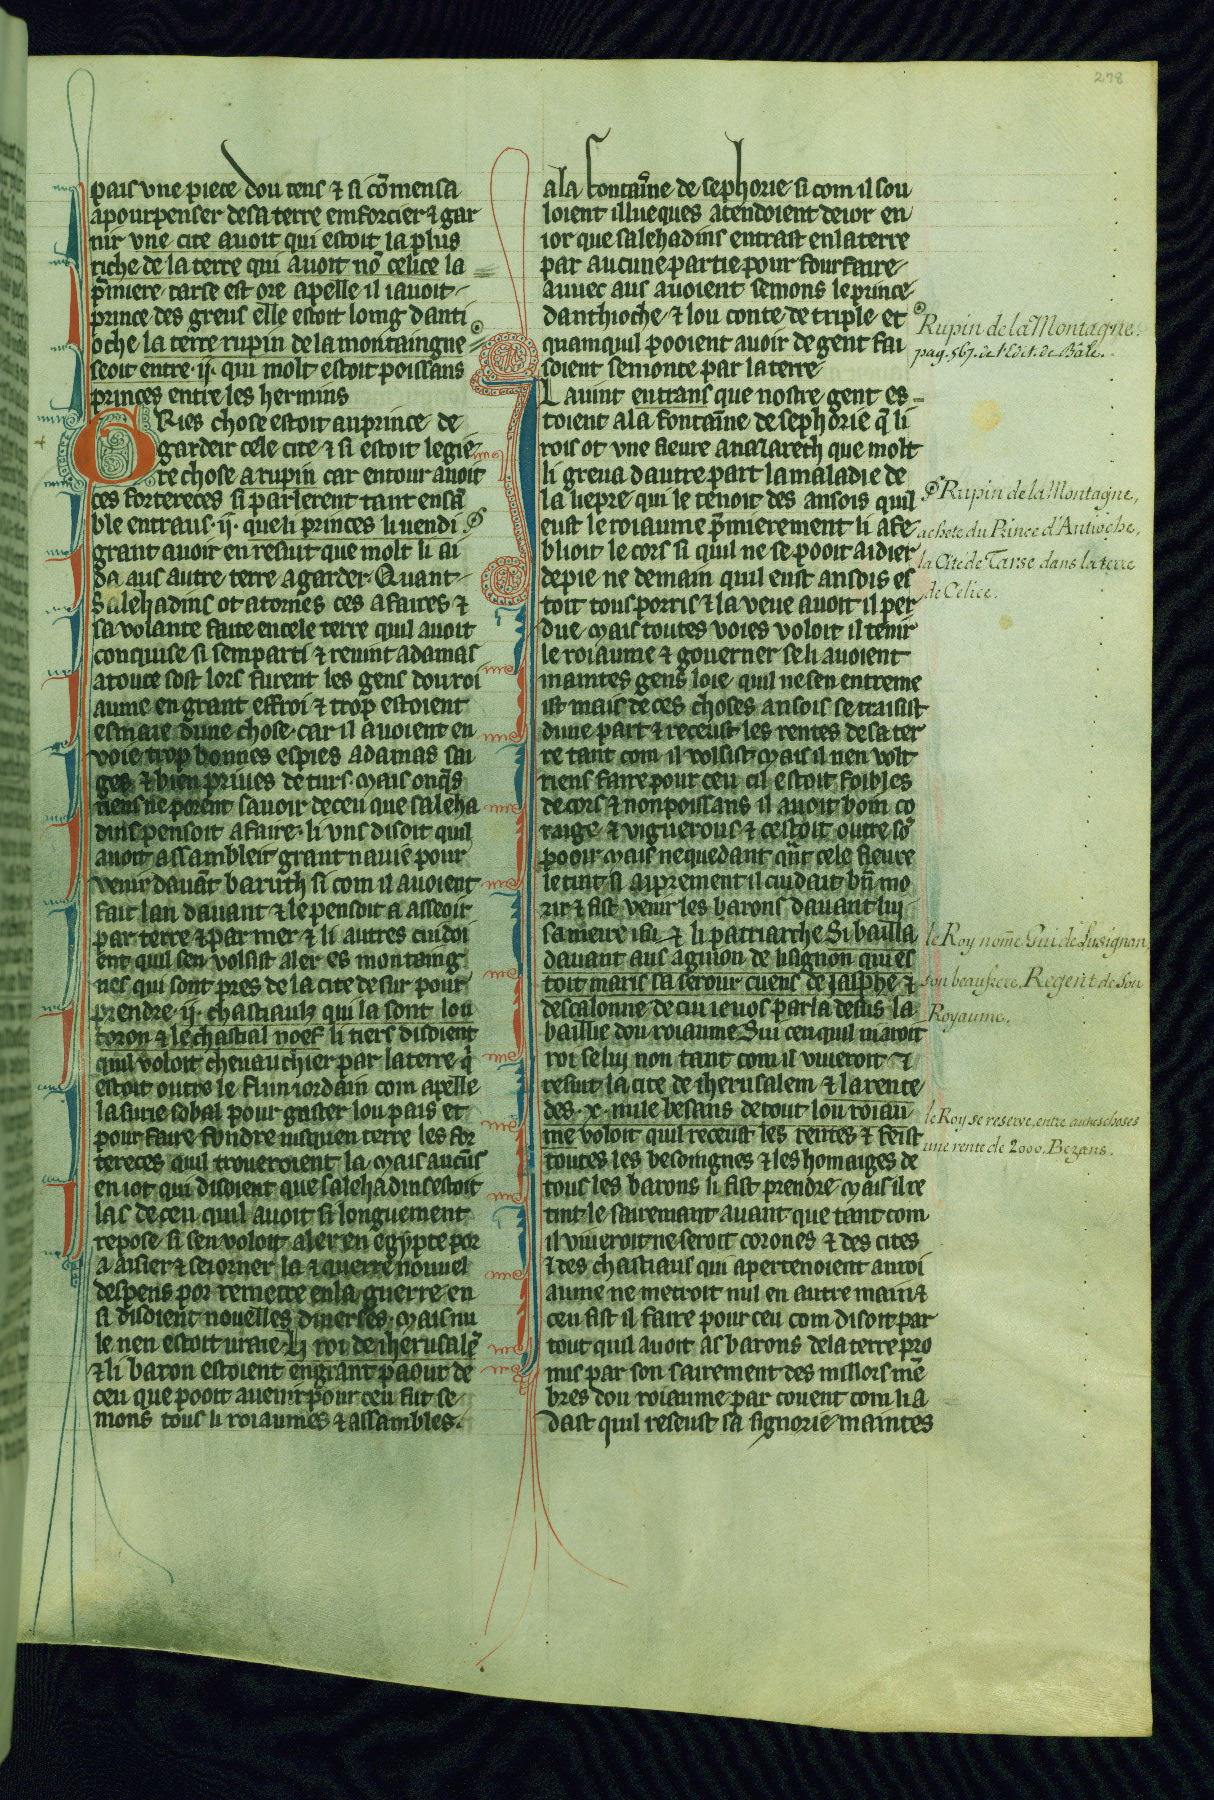 278
pais vne piece dou tens ⁊ si cōmensa
apourpenser desa terre emforcier ⁊ gar
nir vne cite auoit qui estoit la plus
riche de la terre qui auoit nō celice la
p̄miere tarse est ore apelle il iauoit
prince des greus elle estoit loing danti
oche la terre rupin de la montaingne
seoit entre .ij. qui molt estoit poissans
princes entre les hermins
Gries chose estoit auprince de
gardeir cele cite ⁊ si estoit legie
re chose a rupin car entour auoit
ces fortereces si parlerent tant ensā
ble entraus .ij. que li princes li uendi
grant auoir en resuit que molt li ai
da aus autre terre agarder. Quant
Salehadins ot atornes ces afaires ⁊
sa volante faite encele terre quil auoit
conquise si semparti ⁊ reuint adamas
atoute sost lors furent les gens dou roi
aume en grant effroi ⁊ trop estoient
esmaie dune chose. car il auoient en
voie trop bonnes espies adamas sai
ges ⁊ bien priues de turs. mais onq̄s
riens ne porent sauoir deceu que saleha
dins pensoit afaire. li vns disoit quil
auoit assambleit grant nauie pour
venir dauāt baruth si com il auoient
fait lan dauant ⁊ le pensoit a asseoir
par terre ⁊ par mer ⁊ li autres cuidoi
ent quil sen volsist aler es montaing
nes qui sont pres de la cite de sur pour
prendre .ij. chastiaulz qui la sont lou
toron ⁊ le chastial noef li tiers disoient
quil voloit cheuauchier par laterre q̄
estoit outre le flun iordain com apelle
la surie sobal pour guster lou pais et
pour faire fondre iusquen terre les for
tereces quil troueroient la. mais aucūs
en iot qui disoient que salehadins estoit
las deceu quil auoit si longuement
repose si sen voloit aler en egypte por
a aisier ⁊ seiorner la ⁊ querre nouuel
despens por remetre enla guerre en
si disoient nouelles diuerses. mais nu
le nen estoit uraie. Li roi de iherusalē
⁊ li baron estoient engrant paour de
ceu que pooit auenir pour ceu fut se
mons tous li roiaumes ⁊ assambles.
ala fontainne de sephorie si com il sou
loient illueques atendoient deior en
ior que salehadins entrast enlaterre
par aucune partie pour fourfaire
auuec aus auoient semons le prince
danthioche ⁊ lou conte de triple et
quamquil pooient auoir de gent fai
soient semonte par laterre
IL auint entrans que nostre gent es
toient ala fontāne de sephorie q̄ li
rois ot vne fieure anazareth que molt
li greua dautre part la maladie de
la liepre qui le tenoit des ansois quil
eust le roiaume p̄mierement li afe
blioit le cors si quil ne se pooit aidier
depie ne demain quil eust ansois es
toit tous porris ⁊ la veue auoit il per
due mais toutes voies voloit il tenir
le roiaume ⁊ gouerner se li auoient
maintes gens loie quil ne sen entreme
ist mais de ces choses ansois se traisist
dune part ⁊ receust les rentes de sa ter
re tant com il volsist mais il nen volt
riens faire pour ceu cil estoit foibles
de cors ⁊ non poissans il auoit bom co
raige ⁊ viguerous ⁊ cestoit outre sō
pooir mais nequedant qn̄t cele fieure
le tint si aprement il cuidait bn̄ mo
rir ⁊ fist venir les barons dauant lui
sa meire isi ⁊ li patriarche Si bailla
dauant aus aguion de lisignon qui es
toit maris sa serour cuens de Jasphe ⁊
descalonne de cui ie uos parla desus la
baillie dou roiaume Sui ceu quil nauroit
roi se lui non tant com il viueroit ⁊
resuit la cite de iherusalem ⁊ la rente
des .x. mile besans de tout lou roiau
me voloit quil receust les rentes ⁊ feist
toutes les besoingnes ⁊ les homaiges de
tous les barons li fist prendre mais il re
tint le sairemant auant que tant com
il viueroit ne seroit corones ⁊ des cites
⁊ des chastiaus qui apertenoient auroi
aume ne metroit nul en autre main ⁊
ceu fist il faire pour ceu com disoit par
tout quil auoit as barons dela terre pro
mis par son sairement des millors mē
bres dou roiaume par couent com li a
dast quil reseust sa signorie maintes
Rupin de la Montagne.
pag. 567. de l'Edit. de Bâle.
Rupin de la Montagne,
achete du Prince d'Antioche,
la Cité de Tarse dans la terre
de Celice.
le Roy nom̄e Gui de Lusignan
son beaufrere, Regent de son
Royaume.
le Roy se reserve, entre autres choses
une rente de 2000. Bezans.